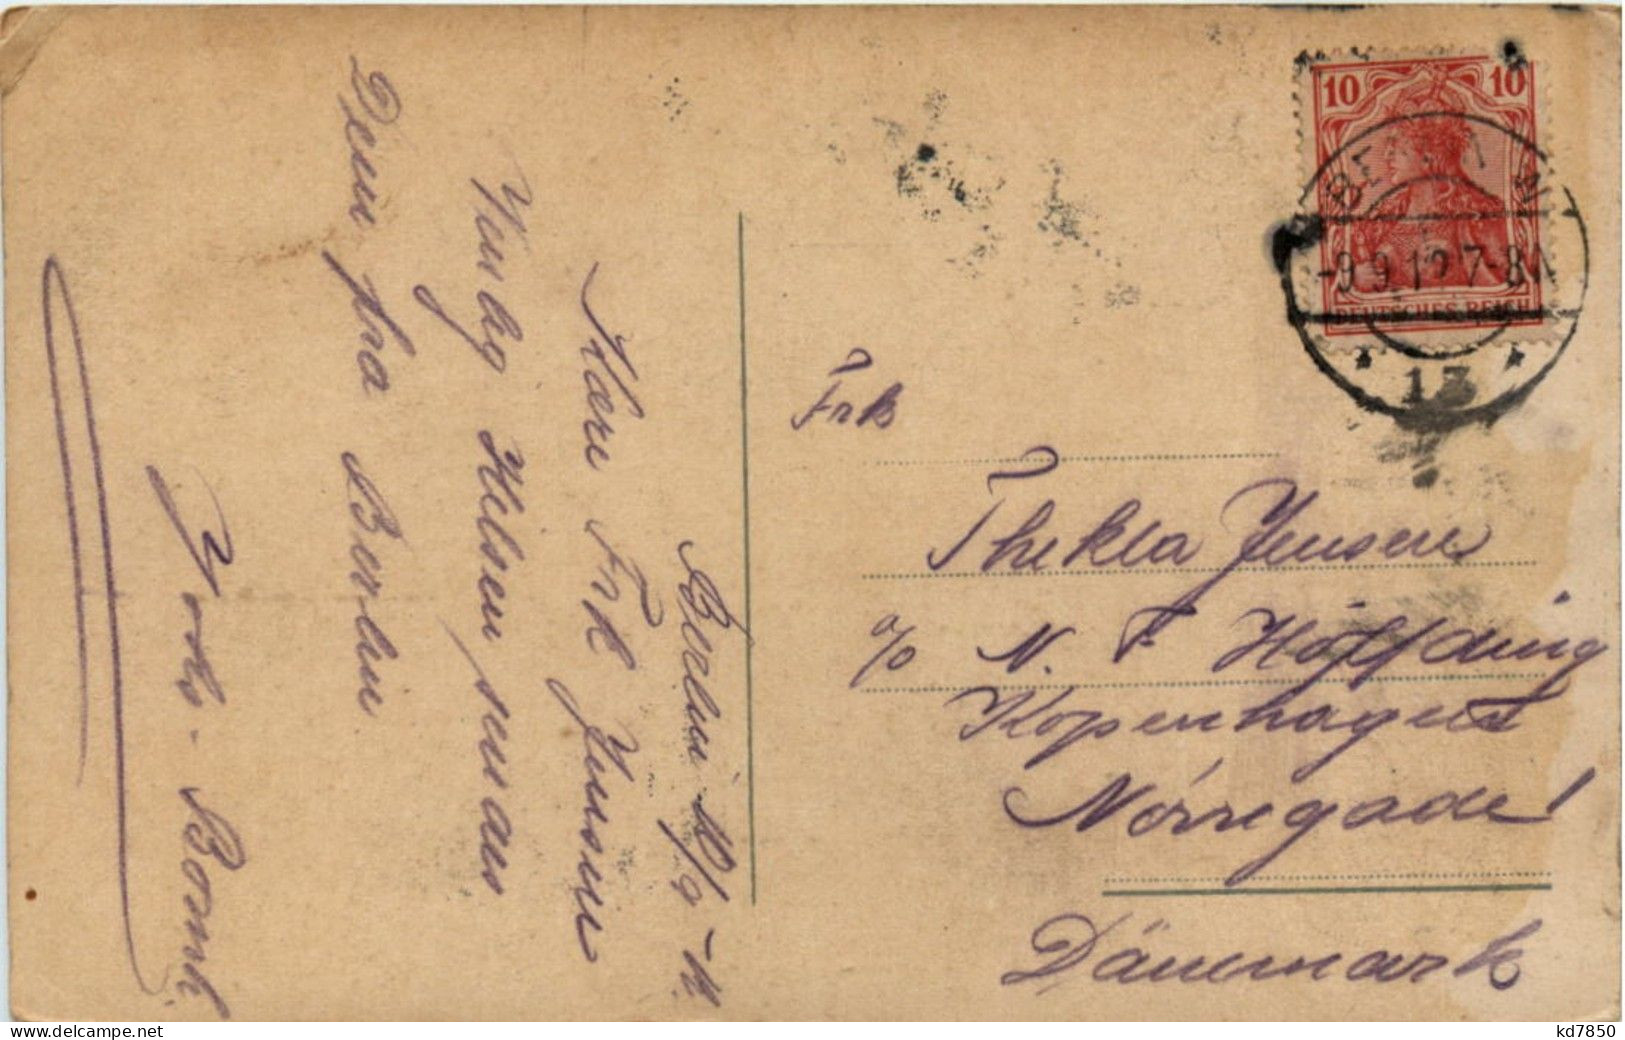 Kære Frk Jensen
Venlig Hilsen sendes
Dem fra Berlin
10 10
DEUTSCHES REICH
BERLIN
-9.9.12 7-8
* 13 *
Frk
Thekla Jensen
c/o N. F. Höffding
Kopenhagen
Nörregade 1
Dänemark
kd7850
www.delcampe.net